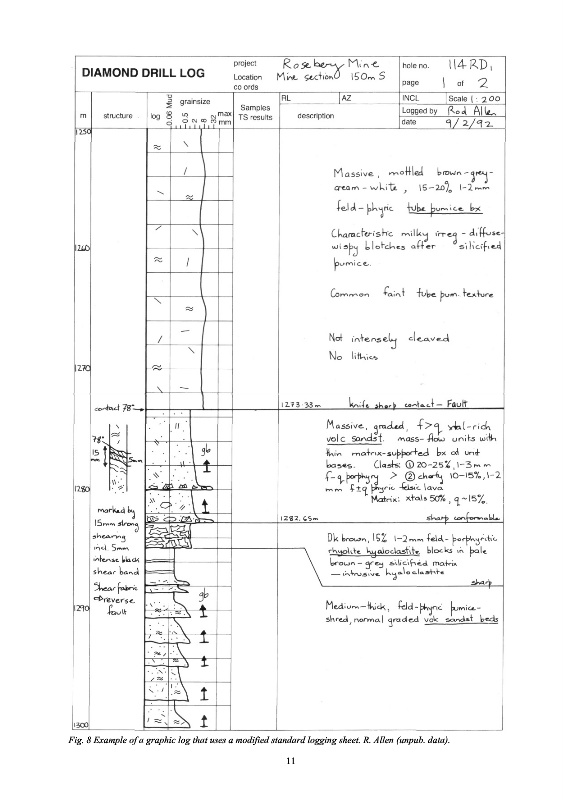 DIAMOND DRILL LOG
project Rosebery Mine
Location Mine section 150m S
co ords
hole no. 114RD,
page 1 of 2
RL AZ INCL Scale 1:200
Logged by Rod Allen
date 9/2/92
m structure log grainsize
0.06 Mud 0.5 2 8 32 max mm
Samples
TS results
description
1250
Massive, mottled brown-grey-
cream-white, 15-20% 1-2mm
feld-phyric tube pumice bx
Characteristic milky irreg-diffuse-
wispy blotches after silicified
pumice.
1260
Common faint tube pum. texture
Not intensely cleaved
No lithics
1270
contact 78°
1273.33m knife sharp contact - Fault
Massive, graded, f>q xtal-rich
volc sandst. mass-flow units with
thin matrix-supported bx at unit
bases. Clasts: ① 20-25%, 1-3mm
f-q porphyry > ② cherty 10-15%, 1-2
mm f±q phyric felsic lava
Matrix: xtals 50%, q~15%.
78°
15
mm
5mm
gb
1280
marked by
15mm strong
shearing
incl. 5mm
intense black
shear band
Shear fabric
⇒ reverse
fault
1282.65m sharp conformable
Dk brown, 15% 1-2mm feld-porphyritic
rhyolite hyaloclastite blocks in pale
brown-grey silicified matrix
— intrusive hyaloclastite
sharp
gb
1290
Medium-thick, feld-phyric pumice-
shred, normal graded volc sandst beds
1300
Fig. 8 Example of a graphic log that uses a modified standard logging sheet. R. Allen (unpub. data).
11